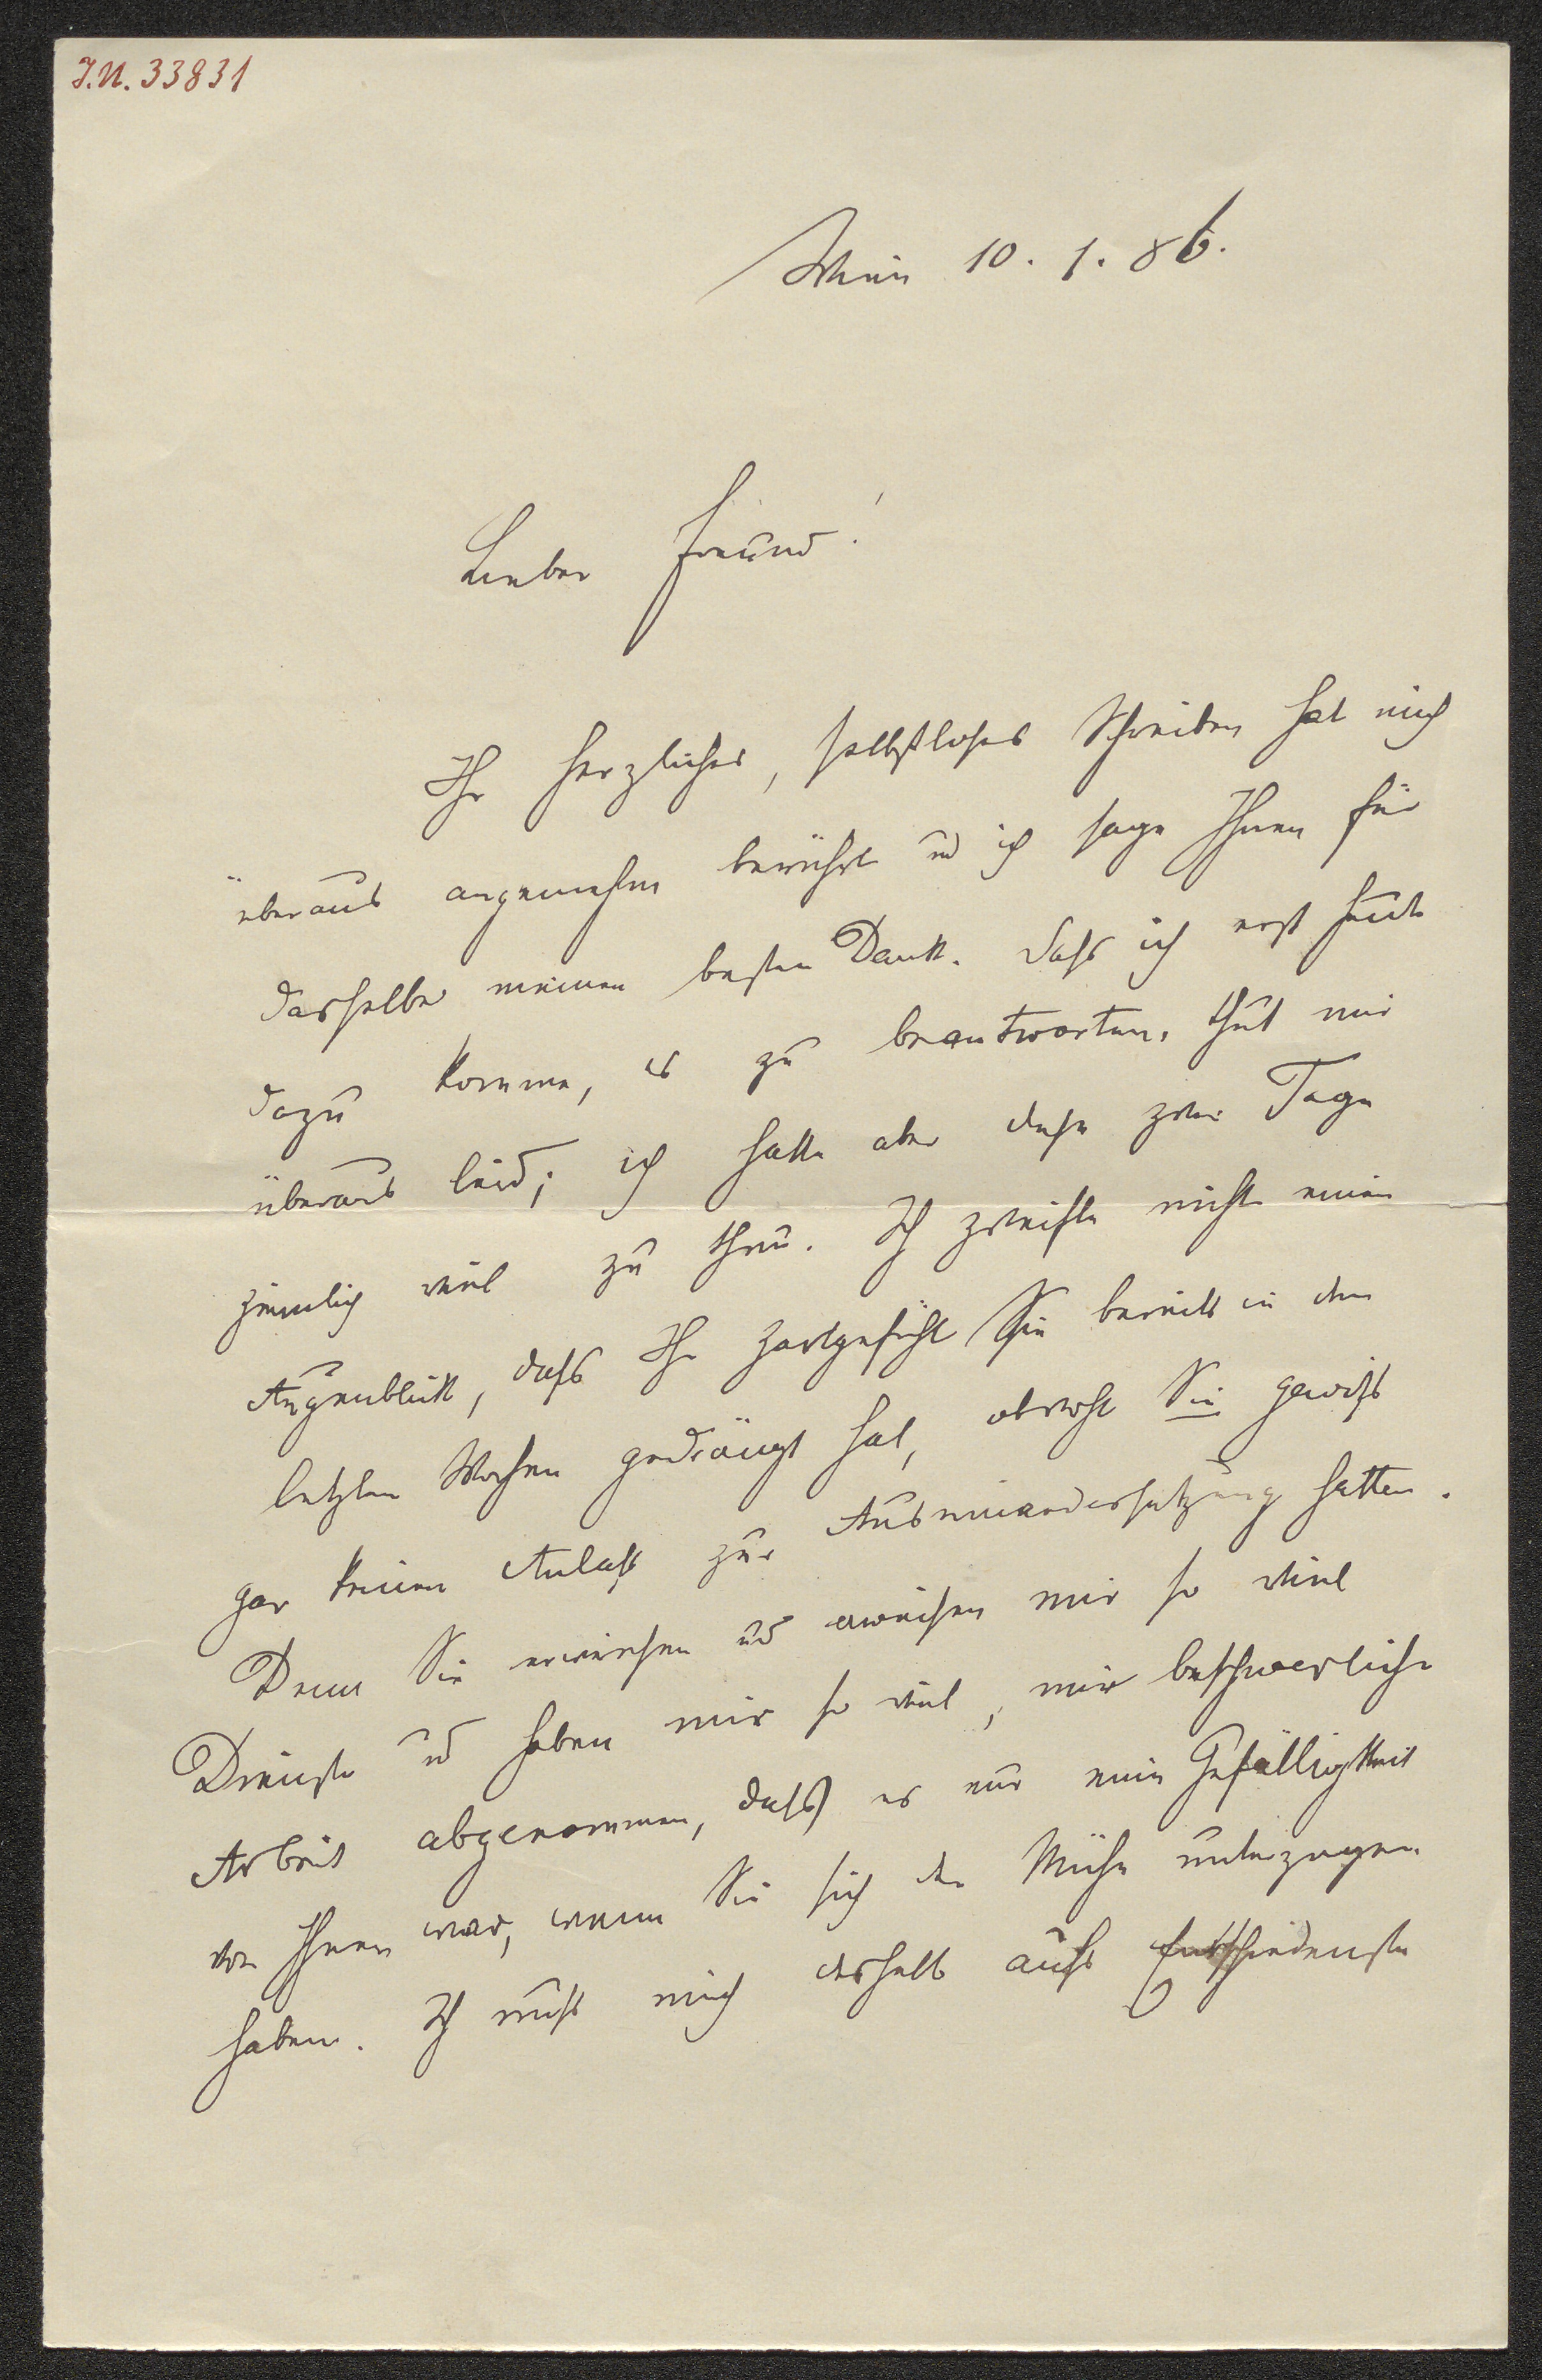 J.N. 33831
Wien 10. 1. 86.
Lieber Freund!
Ihr herzliches, selbstloses Schreiben hat mich
überaus angenehm berührt und ich sage Ihnen für
dasselbe meinen besten Dank. Daß ich erst heute
dazu komme, es zu beantworten, thut mir
überaus leid; ich hatte aber diese zwei Tage
ziemlich viel zu thun. Ich zweifle nicht einen
Augenblick, daß Ihr Zartgefühl Sie bereits in den
letzten Wochen gedrängt hat, obwohl Sie gewiß
gar keinen Anlaß zur Auseinandersetzung hatten.
Denn Sie erwiesen und erweisen mir so viel
Dienste und haben mir so viel, mir beschwerliche
Arbeit abgenommen, daß es nur eine Gefälligkeit
von Ihnen war, wenn Sie sich der Mühe unterzogen
haben. Ich muß mich deshalb aufs Entschiedenste